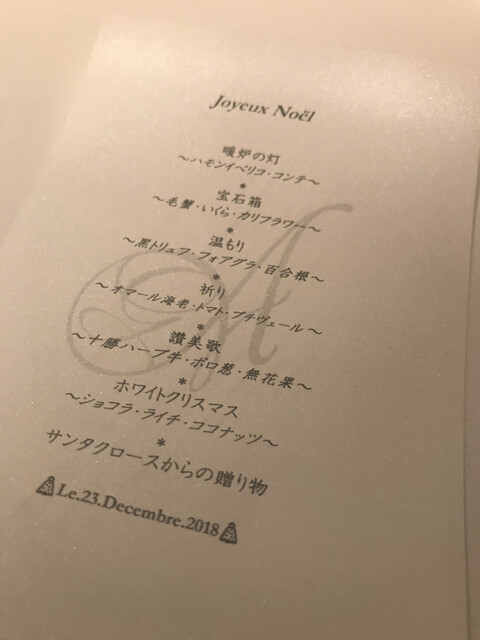 Joyeux Noël
暖炉の灯
～ハモンイベリコ・コンテ～
*
宝石箱
～毛蟹・いくら・カリフラワー～
*
温もり
～黒トリュフ・フォアグラ・百合根～
*
祈り
～オマール海老・トマト・プチヴェール～
*
讃美歌
～十勝ハーブ牛・ポロ葱・無花果～
*
ホワイトクリスマス
～ショコラ・ライチ・ココナッツ～
*
サンタクロースからの贈り物
Le.23.Decembre.2018
A